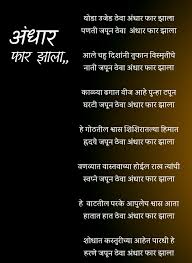 अंधार
फार झाला,,
थोडा उजेड ठेवा अंधार फार झाला
पणती जपून ठेवा अंधार फार झाला
आले चहु दिशांनी तुफान विस्मृतीचे
नाती जपून ठेवा अंधार फार झाला
काळ्या ढगात वीज आहे पुन्हा टपून
घरटी जपून ठेवा अंधार फार झाला
हे गोठतील श्वास शिशिरातल्या हिमात
हृदये जपून ठेवा अंधार फार झाला
वणव्यात वास्तवाच्या होईल राख त्यांची
स्वप्ने जपून ठेवा अंधार फार झाला
हे वाटतील परके आपुलेच श्वास आता
हातात हात ठेवा अंधार फार झाला
शोधात कस्तुरीच्या आहेत पारधी हे
हरणे जपून ठेवा अंधार फार झाला